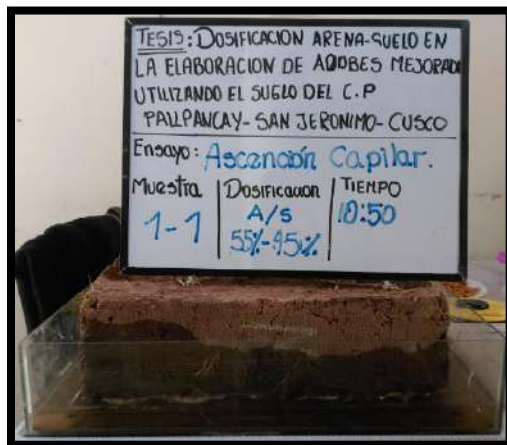 TESIS: DOSIFICACION ARENA-SUELO EN
LA ELABORACION DE ADOBES MEJORADO
UTILIZANDO EL SUELO DEL C.P
PALLPANCAY- SAN JERONIMO- CUSCO
Ensayo: Ascención Capilar.
Muestra Dosificacion TIEMPO
1-1 A/S 10:50
55%-45%